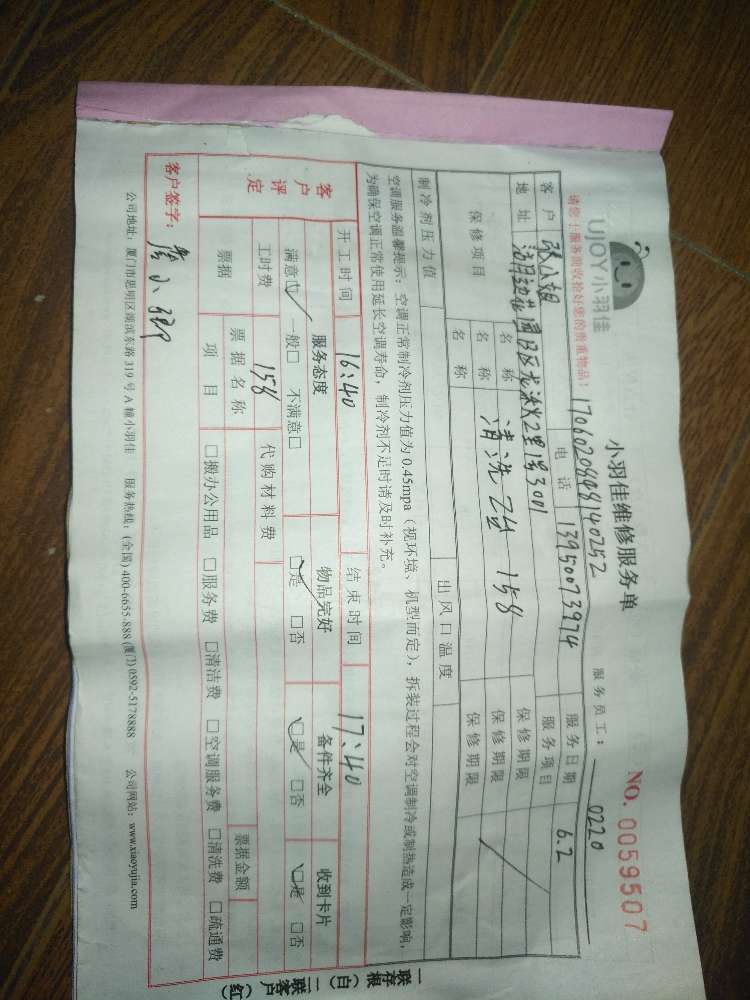 UJOY小羽佳
小羽佳维修服务单
NO. 0059507
请您于服务前收拾好您的贵重物品！
17060208081140252
服务员工： 0220
客户 张小姐 电话 13950073974 服务日期 6.2
地址 服务项目
保修项目 名称 清洗2台 158 保修期限
名称 保修期限
名称 保修期限
制冷剂压力值 出风口温度
空调服务温馨提示：空调正常制冷剂压力值为 0.45mpa（视环境、机型而定），拆装过程会对空调制冷或制热造成一定影响，
为确保空调正常使用延长空调寿命，制冷剂不足时请及时补充。
开工时间 16:40 结束时间 17:40
客户评定 服务态度 物品完好 备件齐全 收到卡片
满意☑ 一般□ 不满意□ ☑是 □否 ☑是 □否 ☑是 □否
工时费 158 代购材料费
票据 票据名称 票据金额
项目 □搬办公用品 □服务费 □清洁费 □空调服务费 □清洗费 □疏通费
客户签字：
公司地址：厦门市思明区湖滨东路 319 号 A 幢小羽佳 服务热线：(全国) 400-6655-888 (厦门) 0592-5178888 公司网站：www.xiaoyujia.com
一联存根（白）二联客户（红）